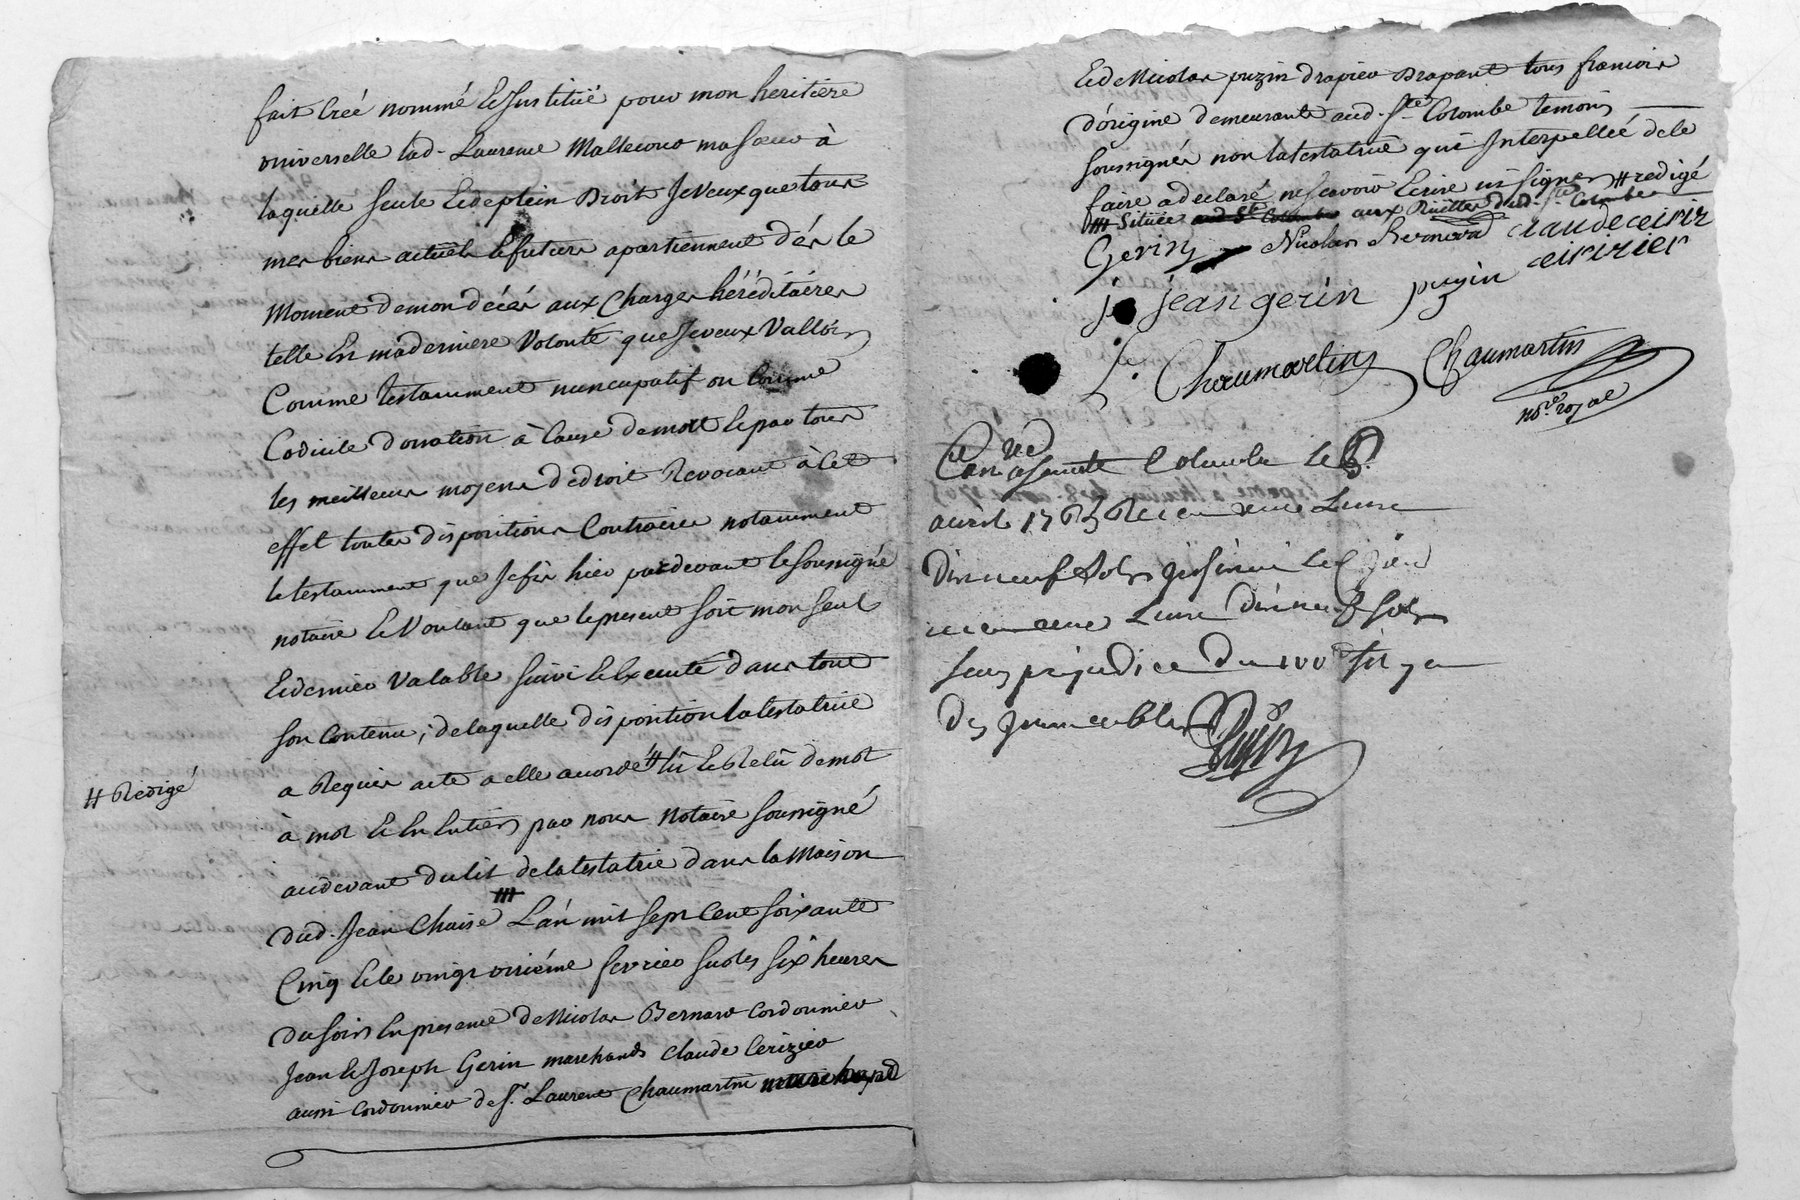 fait Creé nommé Et Institüé pour mon heritiere
vniverselle lad. Laurence Mallecour ma Soeur à
laquelle seule Et de plein Droit Je Veux que tous
mes biens actuels Et futurs apartiennent dés le
Moment de mon décés aux Charges héréditaires
telle En ma derniere Volonté que Je veux Valloir
Comme Testament nuncupatif ou Comme
Codicile Donation à Cause de mort Et par tous
les meilleurs moyens de droit Revocant à Cet
effet toutes dispositions Contraires notamment
le testament que Je fis hier pardevant le Soussigné
notaire Et Voulant que le present soit mon seul
Et dernier Valable suivi Et Executé dans tout
son Contenu, de laquelle disposition la testatrice
a Requis acte a elle accordé # lû Et Relû de mot
# Redigé
à mot Et En Entier par nous Notaire Soussigné
audevant du lit de la testatrice dans la Maison
dud. Jean Chaise # L'an mil sept Cent soixante
Cinq Et le vingt oniéme fevrier sur les six heures
du soir En presence de Nicolas Bernard Cordonnier
Jean Et Joseph Gerin marchands Claude Cerizier
aussi Cordonnier de Sr. Laurent Chaumartin marchand
Et de Nicolas puzin drapier Drapant tous francois
d'origine demeurants aud. Ste Colombe temoins
soussignés non la testatrice qui Interpellée de le
faire a declaré ne scavoir Ecrire ni signer # redigé
# Située aud Ste Colombe aux Ruettes dud. Ste Colombe
Gerin Nicolas Bernard claude ceiriz
ceirizier
j. jean gerin puzin
L. Chaumartin Chaumartin
nore. royal
Con à sainte Colombe le 8
avril 1765 Recu une Livre
Dix neuf sols Jnsinué led Jour
recu une Livre Dix neuf sols
sans prejudice du 100
des Jmmeubles